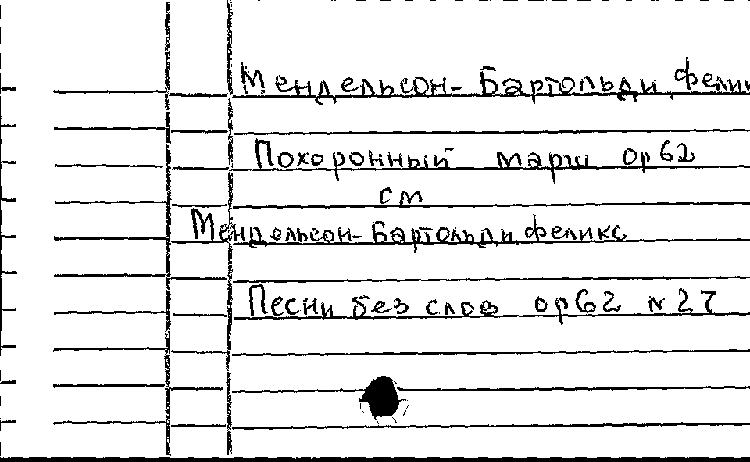 Мендельсон-Бартольди Феликс
Похоронный марш op 62
см
Мендельсон-Бартольди Феликс
Песни без слов op 62 N 27